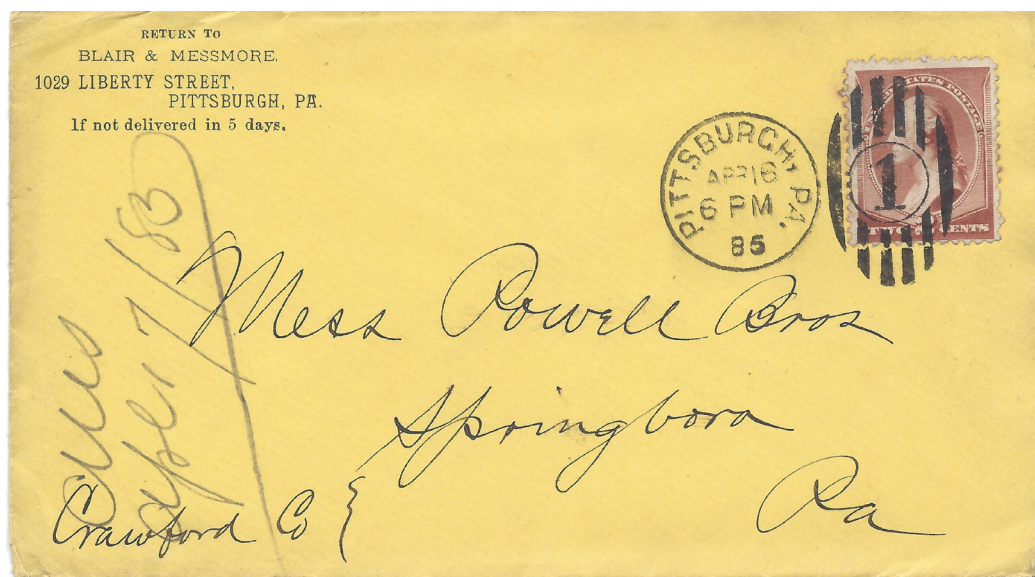 RETURN TO
BLAIR & MESSMORE,
1029 LIBERTY STREET,
PITTSBURGH, PA.
If not delivered in 5 days.
PITTSBURGH, PA.
APR 16
6 PM
86
UNITED STATES POSTAGE
1
TWO CENTS
Mess Powell Bros
Springboro
Crawford Co
Pa